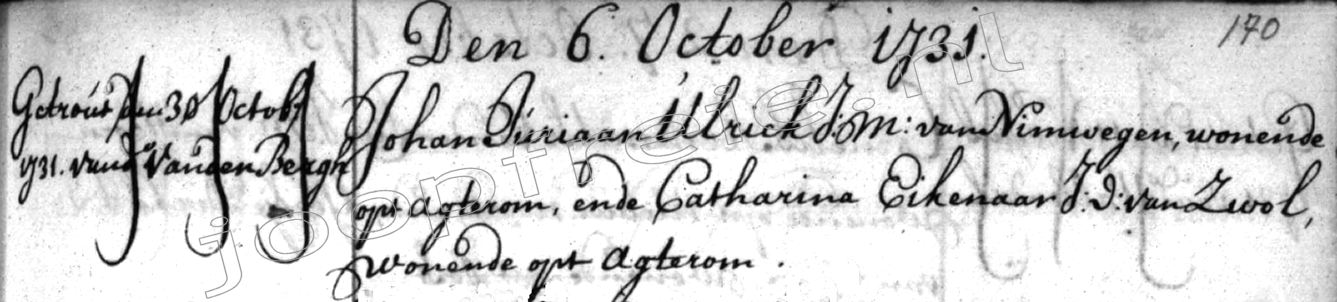 170
Den 6. October 1731.
Getrout den 30 Octob
1731. van d Vanden Bergh
Johan Juriaan Ulrich J:M: van Nimwegen, wonende
opt Agterom, ende Catharina Eikenaar J:D: van Zwol,
wonende opt Agterom.
joopfreis.nl